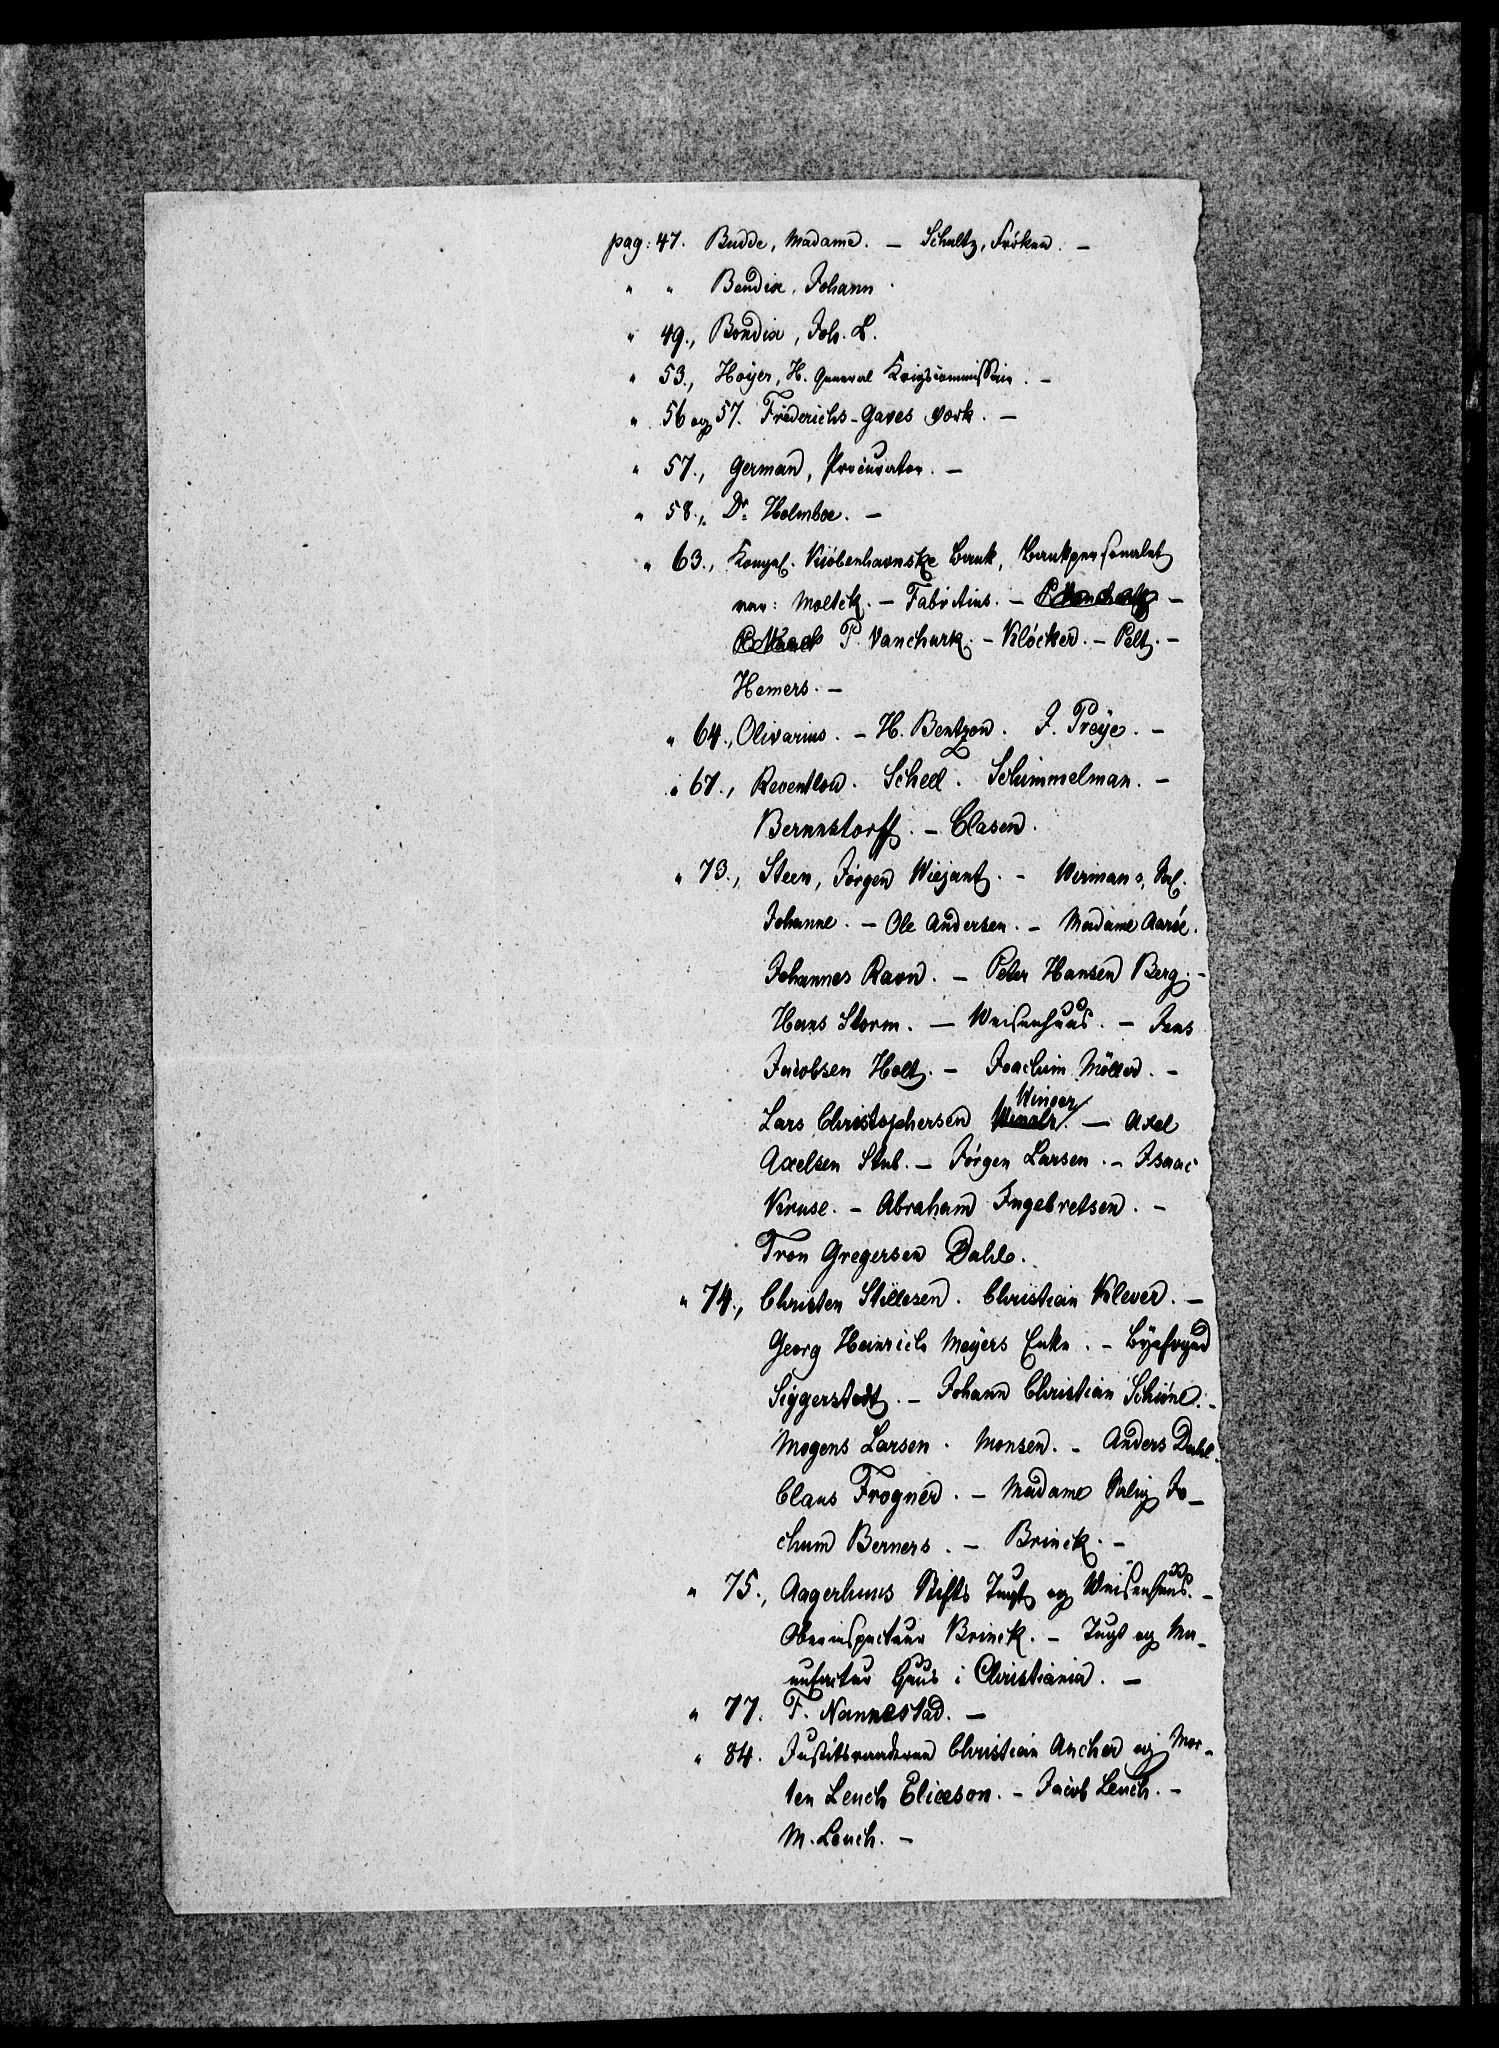 pag: 47. Budde, Madame. — Schultz, Fröken. —
" " Bendix, Johann.
" 49., Bondix, Joh. L.
" 53., Höyer, H. General Krigscommissair. —
" 56 og 57. Friderichs-Gaves Værk. —
" 57., German, Procurator. —
" 58., Dr. Holmboe. —
" 63., Kongel. Kiöbenhavnske Bank, Bankpersonalet
var: Moltck. — Fabritius. — —
P. Vanchurk. — Klöcker. — Pelt. —
Hemers. —
" 64., Olivarius. — H. Bentzon. J. Preÿe. —
" 67., Reventlow. Scheel. Schimmelman. —
Bernnstorff. — Clasen.
" 73., Steen, Jörgen Wiegant. — Wermans, Sal.
Johanne. — Ole Andersen. — Madame Aaröe.
Johannes Ravn. — Peter Hansen Berg. —
Hans Storm. — Waisenhuus. — Jens
Jacobsen Holt. — Joachim Möller. —
Lars Christophersen Winger. — Axel
Axelsen Stub. — Jörgen Larsen. — Isaac
Kruse. — Abraham Ingebretsen. —
Tron Gregersen Dahle.
" 74., Christen Stillesen. Christian Klever. —
Georg Heinrich Meÿers Enke. — Bÿefoged
Siggerstedt. — Johann Christian Schöne. —
Mogens Larsen. Monsen. — Anders Dahl.
Claus Frogner. — Madame Salig Jo—
chum Berners. — Brinck. —
" 75., Aagerhuus Stifts Tugt og Waisenhuus. —
Oberinspecteur Brinck. — Tugt og Ma—
nufactur Huus i Christiania. —
" 77. F. Nannestad. —
" 84. Justitsraaderne Christian Ancher og Mor—
ten Leuch Elieson. — Jacob Leuch. —
M. Leuch. —